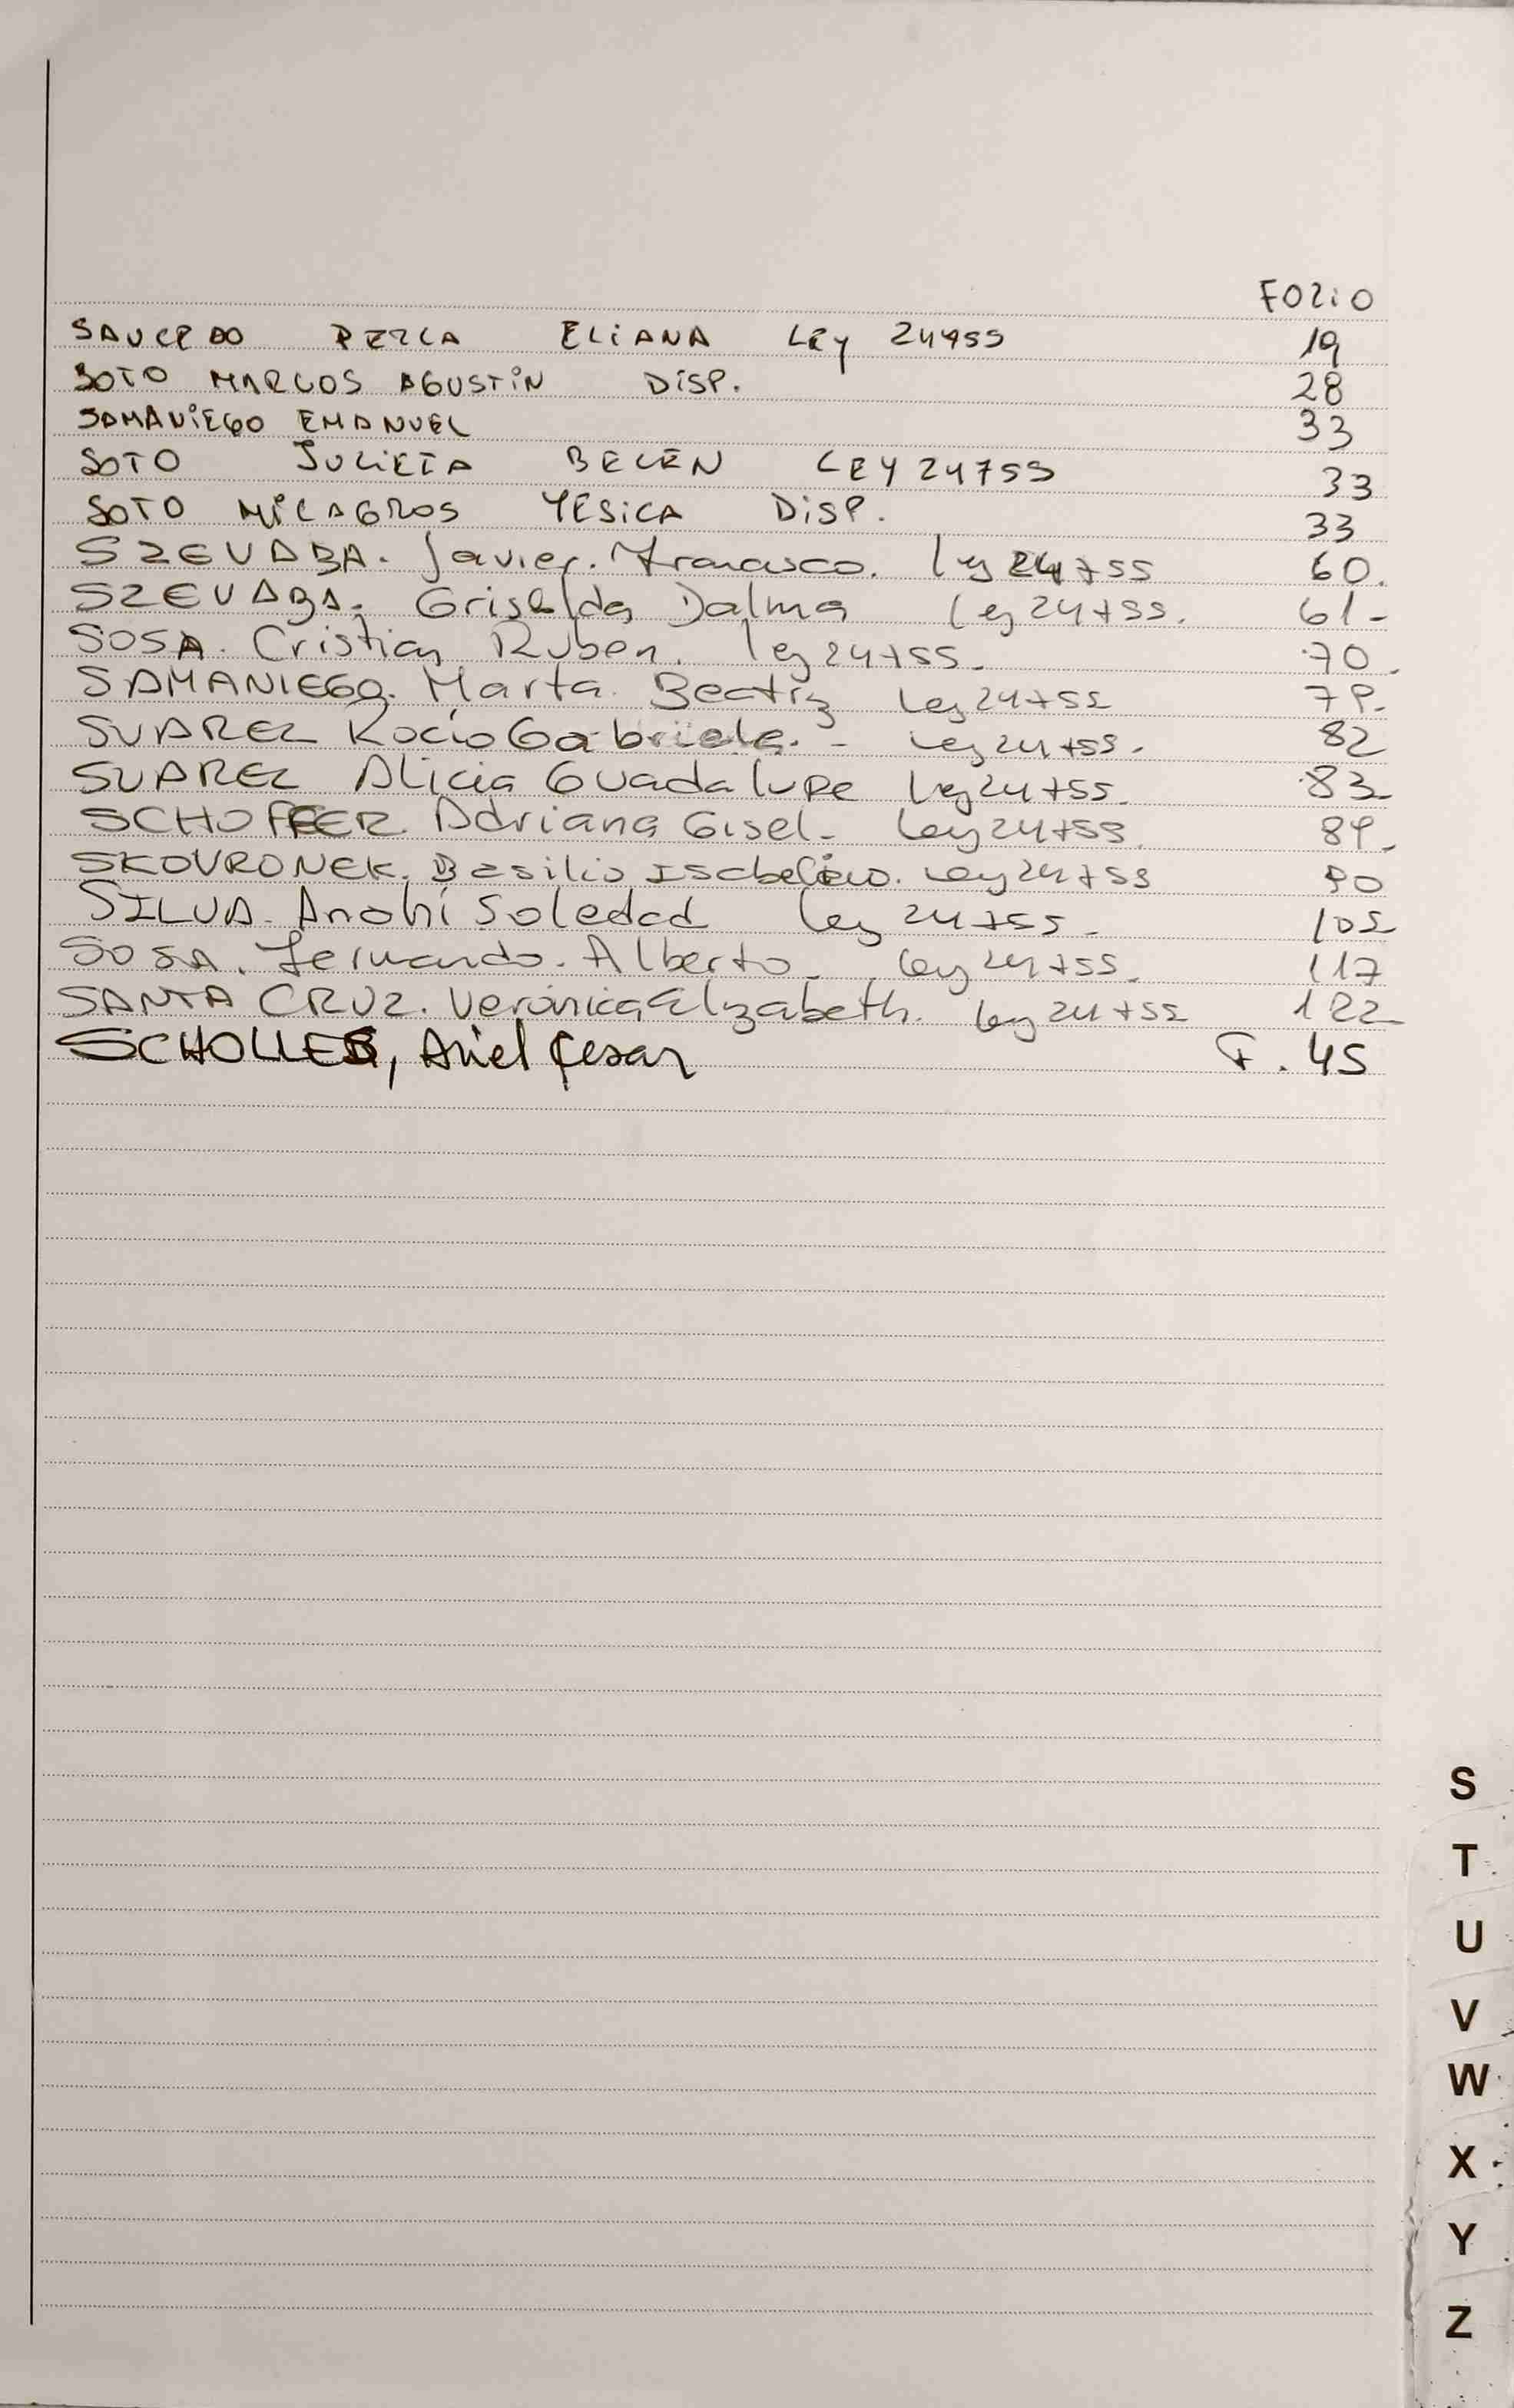 FOLIO
SAUCEDO PERLA ELIANA LEY 24755 19
SOTO MARCOS AGUSTIN DISP. 28
SAMANIEGO EMANUEL 33
SOTO JULIETA BELEN LEY 24755 33
SOTO MILAGROS YESICA DISP. 33
SZEVABA. Javier. Francisco. ley 24755 60.
SZEVABA. Griselda Dalma ley 24755. 61-
SOSA. Cristian Ruben. ley 24755. 70.
SAMANIEGO. Marta. Beatriz Ley 24755 79.
SUAREZ Rocio Gabriela. - Ley 24755. 82
SUAREZ Alicia Guadalupe Ley 24755. 83
SCHOFFER. Adriana Gisel- Ley 24755. 89.
SKOVRONEK. Basilio Isabelino. Ley 24755 90
SILVA. Anahí Soledad Ley 24755- 105
SOSA. Fernando. Alberto. Ley 24755. 117
SANTA CRUZ. Verónica Elizabeth. Ley 24755 122
SCHOLLES, Ariel Cesar F. 45
S
T
U
V
W
X
Y
Z